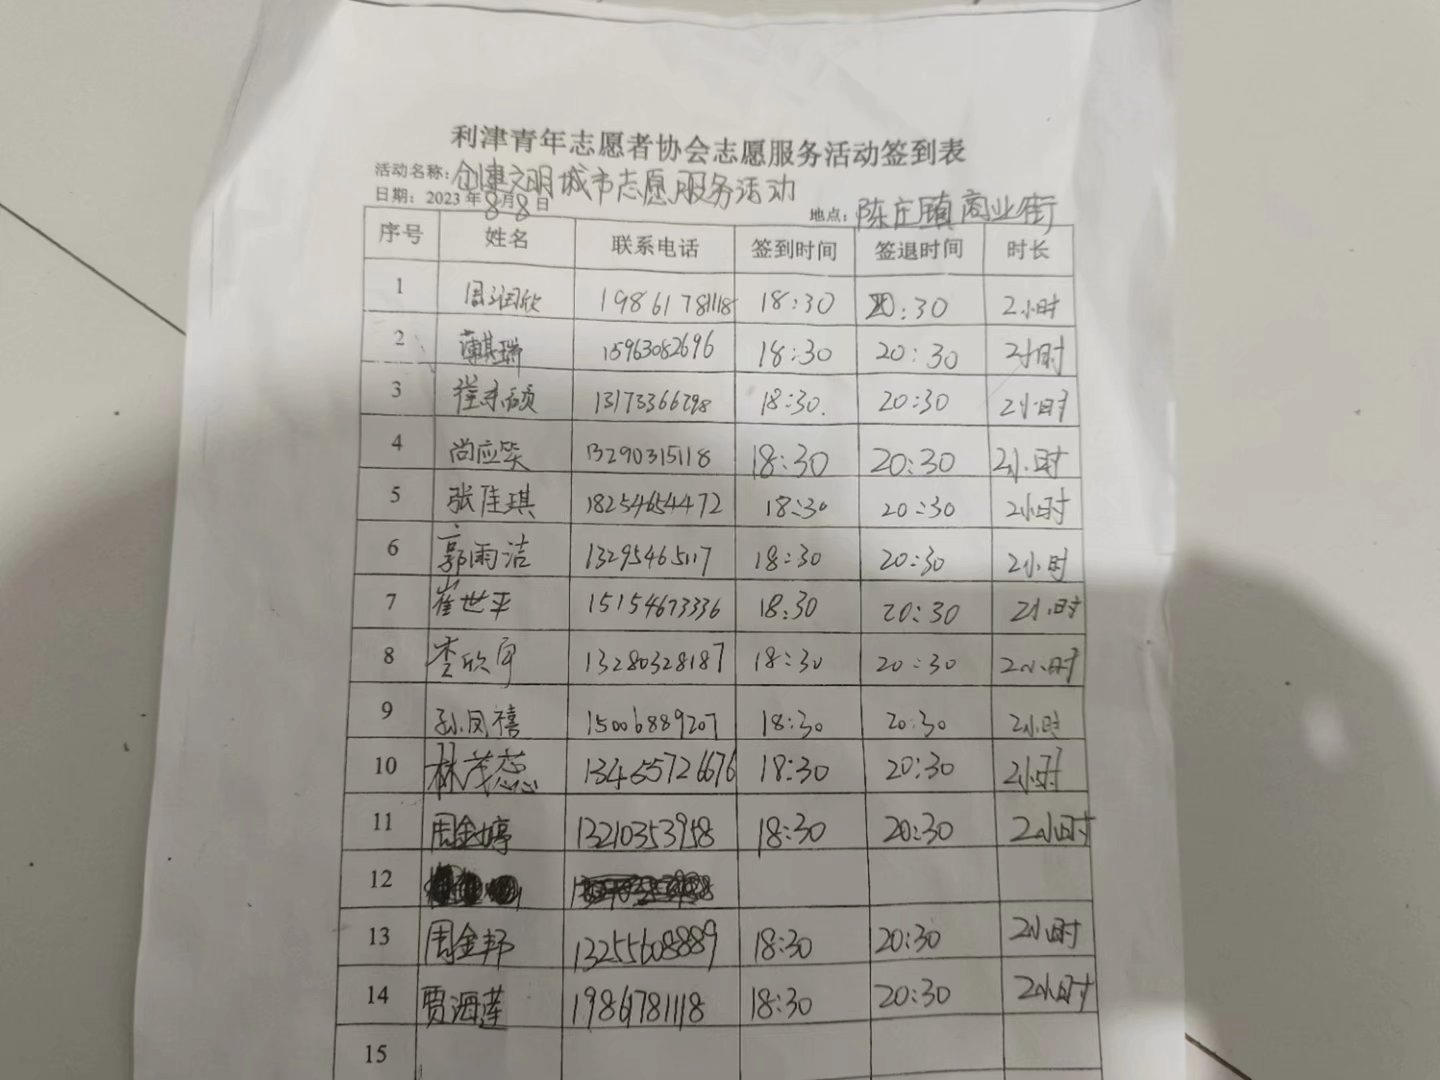 利津青年志愿者协会志愿服务活动签到表
活动名称：创建文明城市志愿服务活动
日期：2023年8月8日 地点：陈庄镇商业街
序号 姓名 联系电话 签到时间 签退时间 时长
1 周润欣 19861781118 18:30 20:30 2小时
2 薄其瑞 15963082696 18:30 20:30 2小时
3 崔东硕 13173366798 18:30. 20:30 2小时
4 尚应笑 13290315118 18:30 20:30 2小时
5 张佳琪 18254654472 18:30 20:30 2小时
6 郭雨洁 13295465117 18:30 20:30 2小时
7 崔世平 15154673336 18:30 20:30 2小时
8 李欣 13280328187 18:30 20:30 2小时
9 孙凤禧 15006889207 18:30 20:30 2小时
10 林茂蕊 13455726676 18:30 20:30 2小时
11 周金婷 13210353958 18:30 20:30 2小时
12
13 周金邦 13255608889 18:30 20:30 2小时
14 贾海莲 19861781118 18:30 20:30 2小时
15